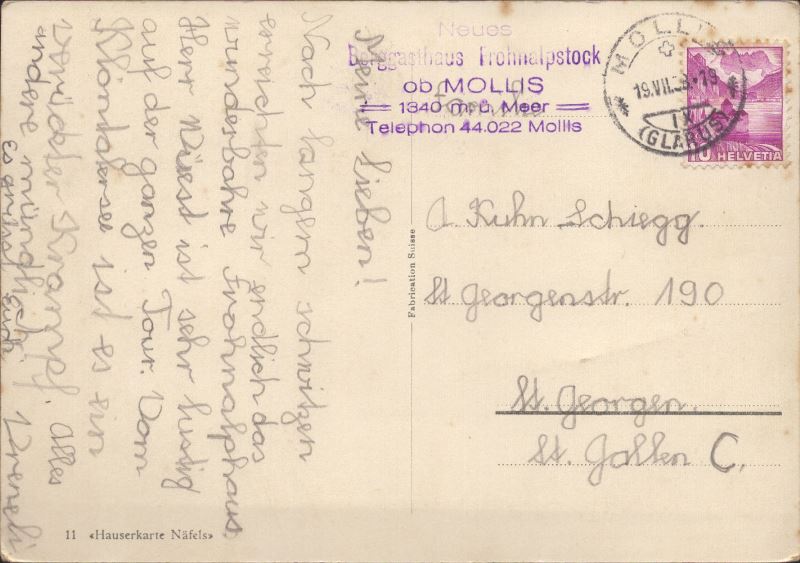 Meine Lieben!
Nach langem schwitzen
erreichten wir endlich das
wunderbahre Frohnalphaus
Herr Nüesst ist sehr lustig
auf der ganzen Tour. Vom
Klöntalersee ist es ein
verückter Krampf. Alles
andere mündlich.
Es grüsst Euch
Vreneli
11 «Hauserkarte Näfels»
Fabrication Suisse
Neues
Berggasthaus Frohnalpstock
ob MOLLIS
1340 m. ü. Meer
Telephon 44.022 Mollis
MOLLIS
19.VII. -19
(GLARUS)
10 HELVETIA
A. Kuhn Schiegg.
St Georgenstr. 190
St. Georgen.
St. Gallen C.